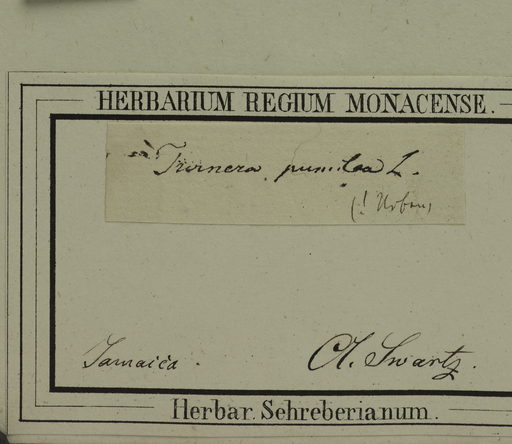 HERBARIUM REGIUM MONACENSE.
Turnera pumilea L.
(! Urban)
Jamaica. Ol. Swartz.
Herbar. Schreberianum.